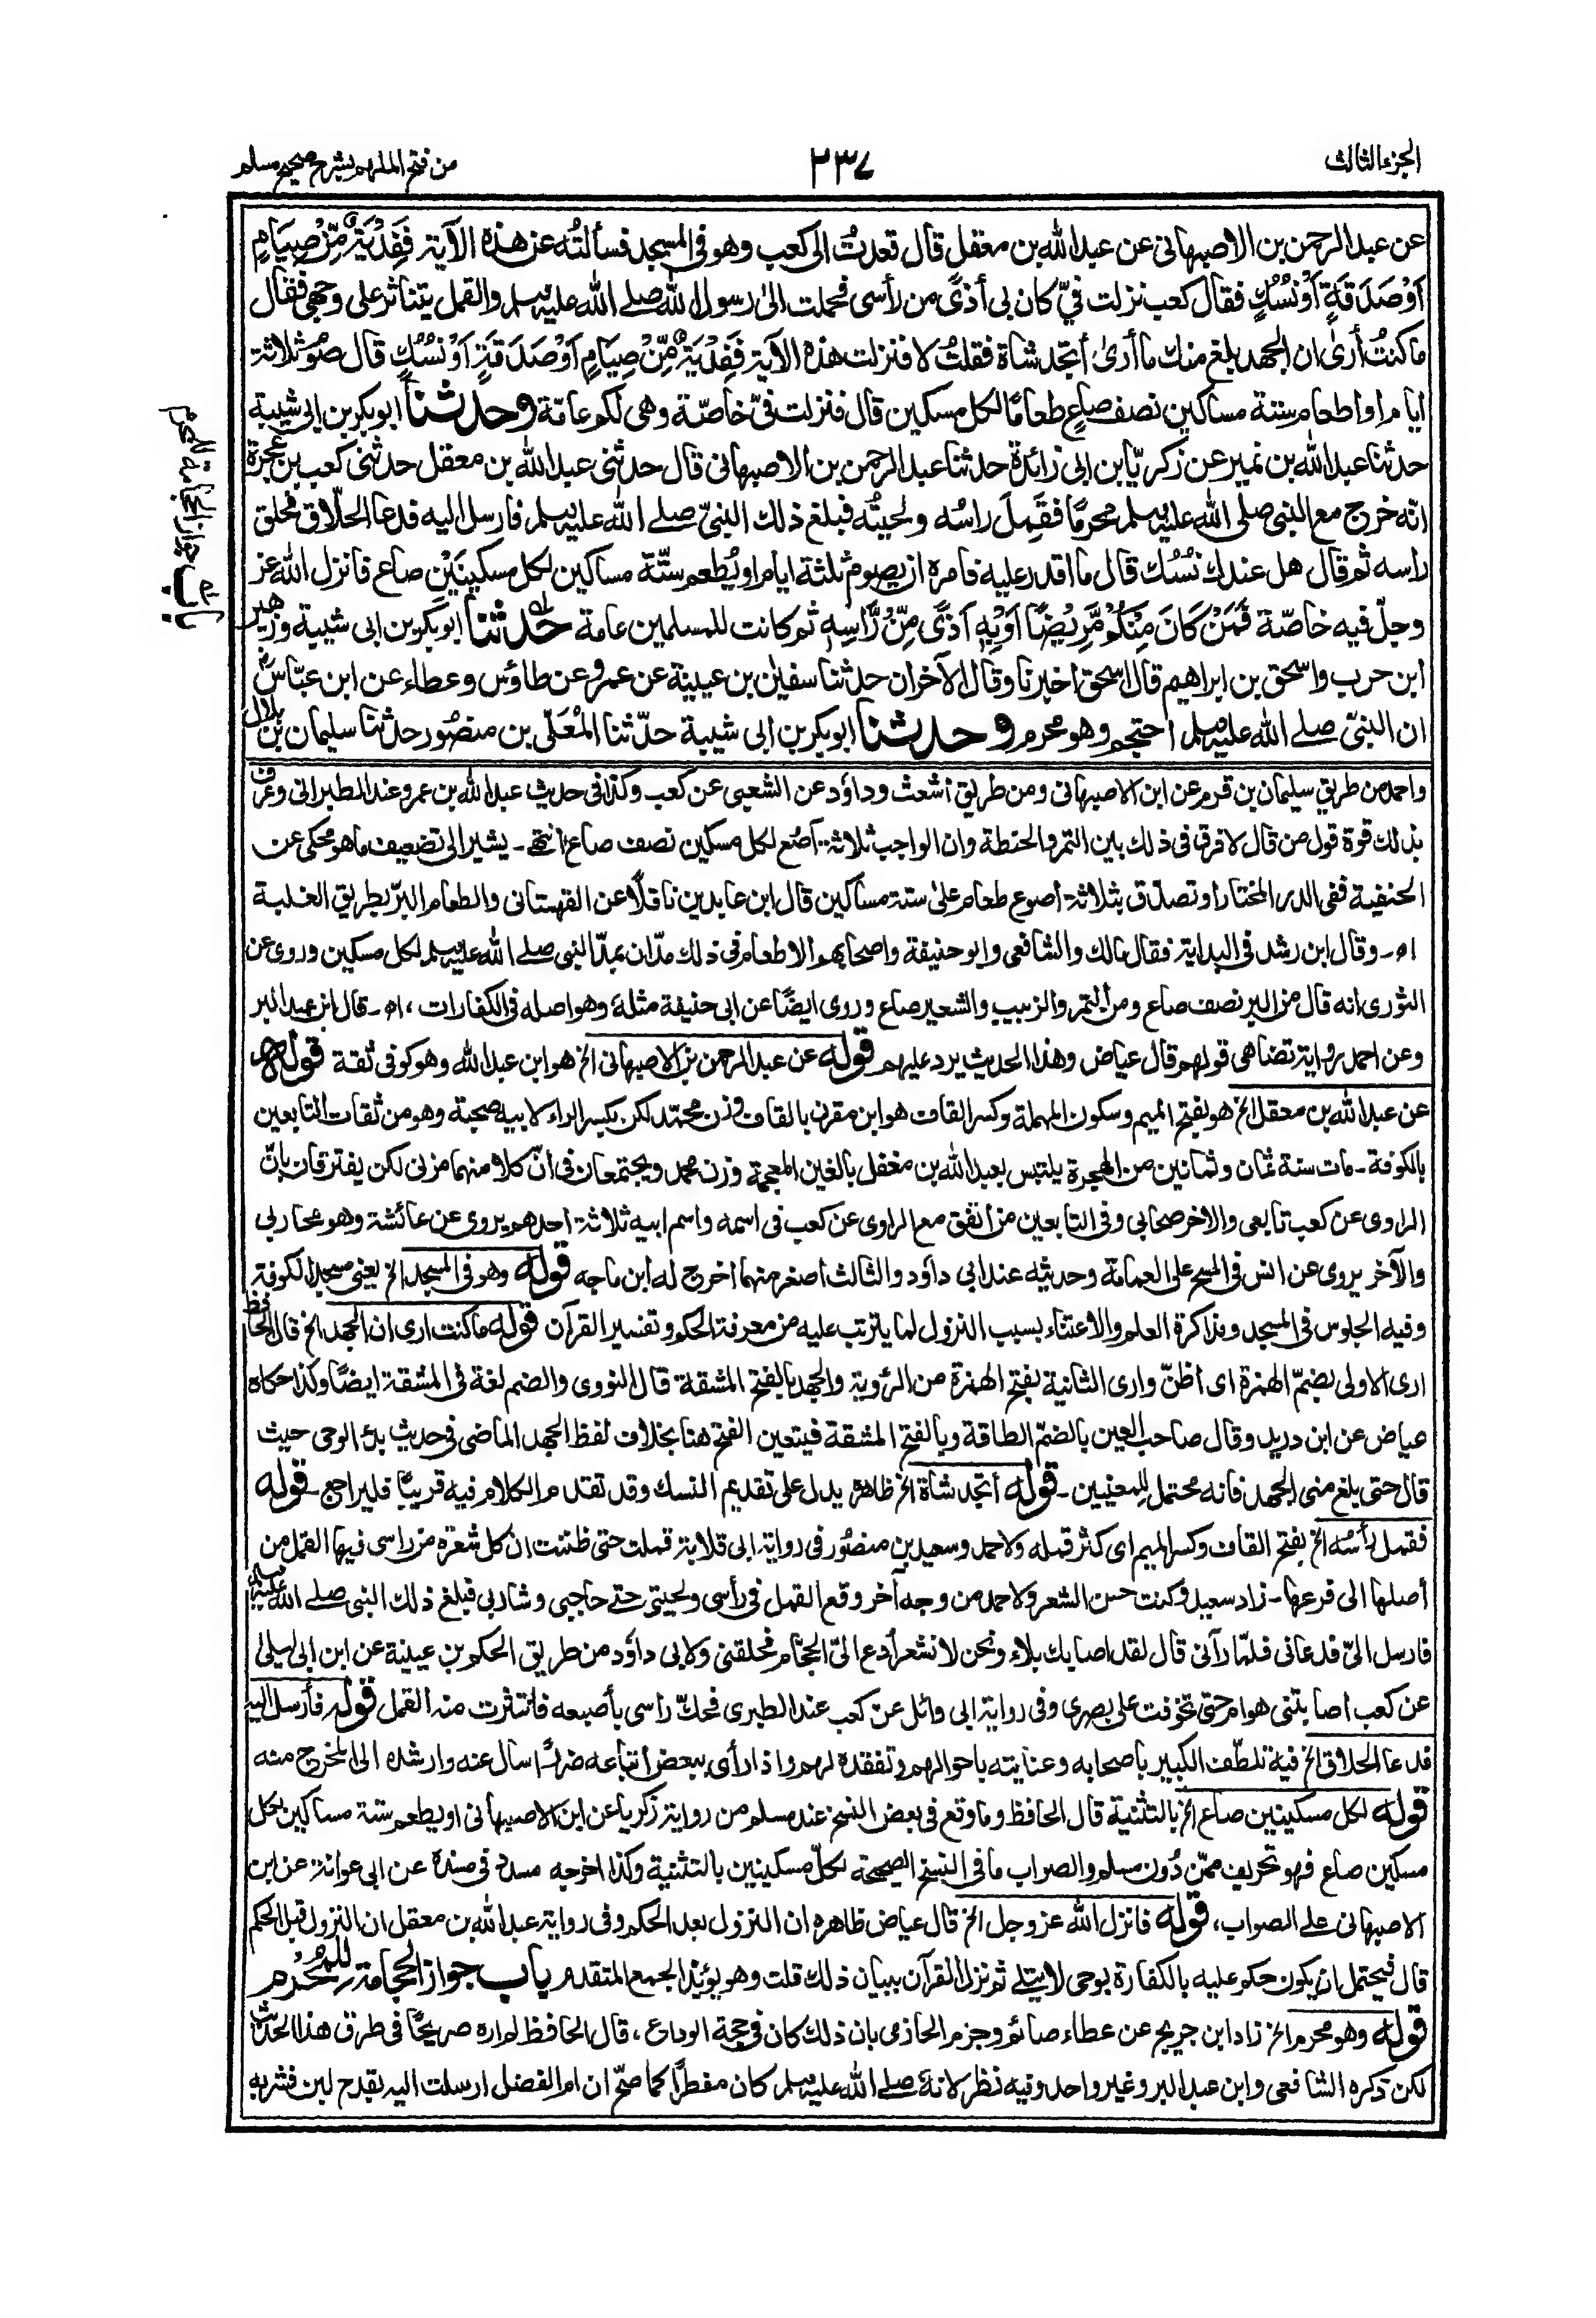 الجزء الثالث
٢٣٧
من فتح الملهم بشرح صحيح مسلم
عن عبد الرحمن بن الاصبهانى عن عبد الله بن معقل قال قعدتُ الى كعب وهو فى المسجد فسألتُه عن هذه الآية فَفِدْيَةٌ مِّنْ صِيَامٍ
اَوْ صَدَقَةٍ اَوْ نُسُكٍ فقال كعب نزلت فيّ كان بى أذىً من رأسى فحملت الىٰ رسول الله صلے الله عليه وسلم والقمل يتناثر على وجهى فقال
ما كنتُ أرىٰ ان الجهد بلغ منك ما أرىٰ أتجد شاة فقلتُ لا فنزلت هذه الآية فَفِدْيَةٌ مِّنْ صِيَامٍ اَوْ صَدَقَةٍ اَوْ نُسُكٍ قال صَوْمُ ثلاثة
ايام او اطعام ستة مساكين نصف صاعٍ طعامًا لكل مسكين قال فنزلت فىّ خاصّة وهى لكم عامّة وحدثنا ابو بكر بن ابى شيبة
حدثنا عبد الله بن نمير عن زكريّا بن ابى زائدة حدثنا عبد الرحمن بن الاصبهانى قال حدثنى عبد الله بن معقل حدثنى كعب بن عجرة
انّه خرج مع النبى صلى الله عليه وسلم محرمًا فقَمِلَ راسُه ولحيتُه فبلغ ذلك النبىّ صلے الله عليه وسلم فارسل اليه فدعا الحلّاق فحلق
رأسه ثم قال هل عندك نُسُك قال ما اقدر عليه فامره ان يصوم ثلثة ايام او يُطعم ستّة مساكين لكل مسكينَيْن صاع فانزل الله عز
وجلّ فيه خاصّة فَمَنْ كَانَ مِنْكُمْ مَّرِيْضًا اَوْ بِهٖ اَذًى مِّنْ رَّاْسِهٖ ثم كانت للمسلمين عامة حدثنا ابو بكر بن ابى شيبة وزهير
ابن حرب واسحٰق بن ابراهيم قال اسحٰق اخبرنا وقال الآخران حدثنا سفيٰن بن عيينة عن عمرو عن طاؤس وعطاء عن ابن عبّاس
ان النبىّ صلے الله عليه وسلم احتجم وهو محرم وحدثنا ابو بكر بن ابى شيبة حدّثنا المُعَلّى بن منصُور حدثنا سليمان بن بلال
باب جواز الحجامة للمحرم
واحمد من طريق سليمان بن قرم عن ابن الاصبهانى ومن طريق أشعث وداوٗد عن الشعبى عن كعب وكذا فى حديث عبد الله بن عمرو عند الطبرانى وعرف
بذلك قوة قول من قال لا فرق فى ذلك بين التمر والحنطة وان الواجب ثلاثة آصُع لكل مسكين نصف صاع انتهے۔ يشير الى تضعيف ما هو محكى عن
الحنفية ففى الدر المختار أو تصدّق بثلاثة أصوع طعام علىٰ ستة مساكين قال ابن عابدين ناقلًا عن القهستانى والطعام البرّ بطريق الغلبة
اھ۔ وقال ابن رشد فى البداية فقال مالك والشافعى وابو حنيفة واصحابهم الاطعام فى ذلك مدّان بمدّ النبى صلے الله عليه وسلم لكل مسكين وروى عن
الثورى انه قال من البر نصف صاع ومن التمر والزبيب والشعير صاع وروى ايضًا عن ابى حنيفة مثله وهو اصله فى الكفارات، اھ۔ قال ابن عبد البر
وعن احمد رواية تضاهى قولهم قال عياض وهذا الحديث يرد عليهم قوله عن عبد الرحمن بن الاصبهانى الخ هو ابن عبد الله وهو كوفى ثقة قوله
عن عبد الله بن معقل الخ هو بفتح الميم وسكون المهملة وكسر القاف هو ابن مقرن بالقاف وزن محمّد لكن بكسر الراء لابيه صحبة وهو من ثقات التابعين
بالكوفة۔ مات سنة ثمان وثمانين من الهجرة يلتبس بعبد الله بن مغفل بالغين المعجمة وزن محمد ويجتمعان فى أنّ كلا منهما مزنى لكن يفترقان بانّ
الراوى عن كعب تابعى والاخر صحابى وفى التابعين من اتفق مع الراوى عن كعب فى اسمه واسم ابيه ثلاثة احدهم يروى عن عائشة وهو محاربى
والآخر يروى عن انس فى المسح على العمامة وحديثه عند ابى داوٗد والثالث اصغر منهما أخرج له ابن ماجه قوله وهو فى المسجد الخ يعنى مسجد الكوفة
وفيه الجلوس فى المسجد ومذاكرة العلم والاعتناء بسبب النزول لما يترتب عليه من معرفة الحكم وتفسير القرآن قوله ما كنت ارى ان الجهد الخ قال الحافظ
ارى الاولى بضمّ الهمزة اى أظنّ وارى الثانية بفتح الهمزة من الرؤية والجهد بالفتح المشقة قال النووى والضم لغة فى المشقة ايضًا وكذا حكاه
عياض عن ابن دريد وقال صاحب العين بالضمّ الطاقة وبالفتح المشقة فيتعين الفتح هنا بخلاف لفظ الجهد الماضى فى حديث بدء الوحى حيث
قال حتى بلغ منى الجهد فانه محتمل للمعنيين۔ قوله أتجد شاة الخ ظاهره يدل على تقديم النسك وقد تقدم الكلام فيه قريبًا فليراجع۔ قوله
فقمل رأسُه الخ بفتح القاف وكسر الميم اى كثر قمله ولاحمد وسعيد بن منصُور فى رواية ابى قلابة قملت حتى ظننت ان كل شعرة من راسى فيها القمل من
أصلها الى فرعها۔ زاد سعيد وكنت حسن الشعر ولاحمد من وجه آخر وقع القمل فى رأسى ولحيتى حتے حاجبى وشاربى فبلغ ذلك النبى صلے الله عليه وسلم
فارسل الىّ فدعانى فلمّا رآنى قال لقد اصابك بلاء ونحن لا نشعر أدع الىّ الحجّام فحلقنى ولابى داوٗد من طريق الحكم بن عيينة عن ابن ابى ليلىٰ
عن كعب اصابتنى هوام حتى تخوفت على بصرى وفى رواية ابى وائل عن كعب عند الطبرى فحكّ راسى بأصبعه فانتثرت منه القمل قوله فأرسل اليه
فدعا الحلاق الخ فيه تلطّف الكبير باصحابه وعنايته باحوالهم وتفقده لهم واذا رأى ببعض أتباعه ضررًا سال عنه وارشده الى المخرج منه
قوله لكل مسكينين صاع الخ بالتثنية قال الحافظ وما وقع فى بعض النسخ عند مسلم من رواية زكريا عن ابن الاصبهانى او يطعم ستة مساكين لكل
مسكين صاع فهو تحريف ممّن دُون مسلم والصواب ما فى النسخ الصحيحة لكلّ مسكينين بالتثنية وكذا اخرجه مسدد فى مسنده عن ابى عوانة عن ابن
الاصبهانى على الصواب، قوله فانزل الله عز وجل الخ قال عياض ظاهره ان النزول بعد الحكم وفى رواية عبد الله بن معقل ان النزول قبل الحكم
قال فيحتمل ان يكون حكم عليه بالكفارة بوحى لا يتلے ثم نزل القرآن ببيان ذلك قلت وهو يؤيد الجمع المتقدم باب جواز الحجامة للمُحْرِم
قوله وهو محرم الخ زاد ابن جريج عن عطاء صائم وجزم الحازمى بان ذلك كان فى حجة الوداع، قال الحافظ لم اره صريحًا فى طرق هذا الحديث
لكن ذكره الشافعى وابن عبد البر وغير واحد وفيه نظر لانهٗ صلے الله عليه وسلم كان مفطرًا كما صحّ ان ام الفضل ارسلت اليه بقدح لبن فشربه